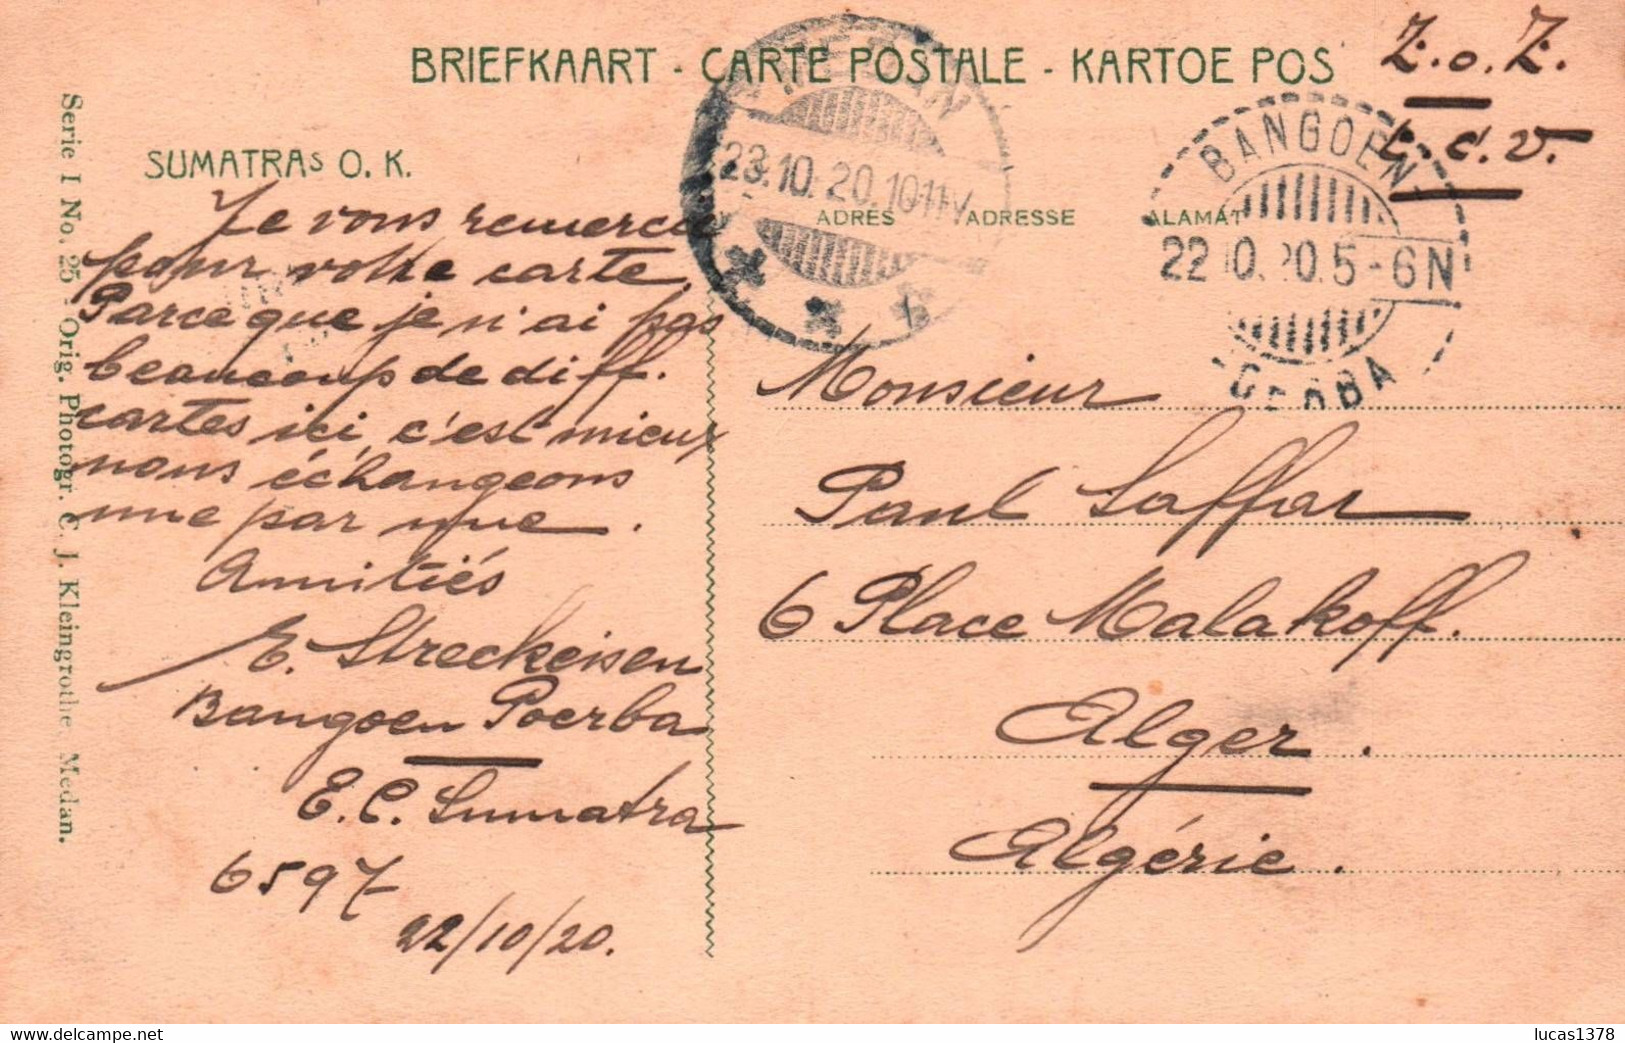 BRIEFKAART - CARTE POSTALE - KARTOE POS
Z.o.Z.
t. c. v.
SUMATRAs O. K.
23.10.20.10-11V
BANGOEN
22 10.20.5-6N
ADRÉS ADRESSE ALAMAT
Je vous remercie
pour votre carte.
Parceque je n'ai pas
beaucoup de diff.
cartes ici, c'est mieux
nous échangeons
une par une.
Amitiés
E. Streckeisen
Bangoen Poerba
E.C. Sumatra
6597
22/10/20.
Monsieur
Paul Saffar
6 Place Malakoff.
Alger.
Algérie.
Serie I No. 25 - Orig. Photogr. C. J. Kleingrothe Medan.
lucas1378